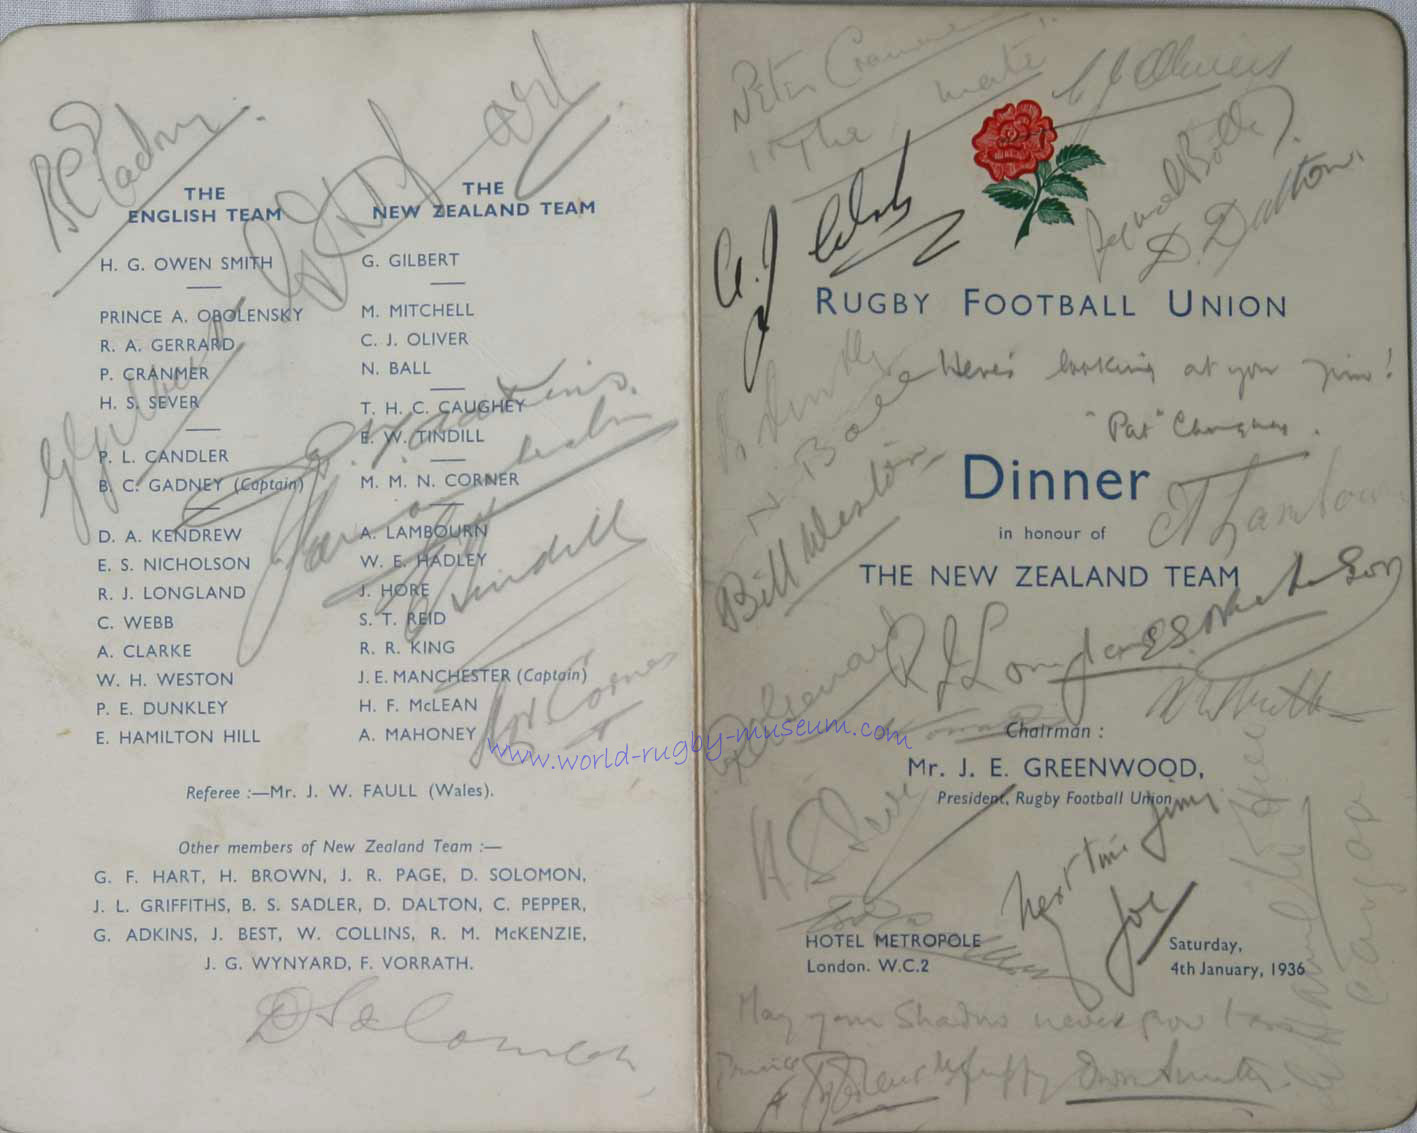 THE
ENGLISH TEAM
H. G. OWEN SMITH
PRINCE A. OBOLENSKY
R. A. GERRARD
P. CRANMER
H. S. SEVER
P. L. CANDLER
B. C. GADNEY (Captain)
D. A. KENDREW
E. S. NICHOLSON
R. J. LONGLAND
C. WEBB
A. CLARKE
W. H. WESTON
P. E. DUNKLEY
E. HAMILTON HILL
THE
NEW ZEALAND TEAM
G. GILBERT
M. MITCHELL
C. J. OLIVER
N. BALL
T. H. C. CAUGHEY
E. W. TINDILL
M. M. N. CORNER
A. LAMBOURN
W. E. HADLEY
J. HORE
S. T. REID
R. R. KING
J. E. MANCHESTER (Captain)
H. F. McLEAN
A. MAHONEY
Referee :—Mr. J. W. FAULL (Wales).
Other members of New Zealand Team :—
G. F. HART, H. BROWN, J. R. PAGE, D. SOLOMON,
J. L. GRIFFITHS, B. S. SADLER, D. DALTON, C. PEPPER,
G. ADKINS, J. BEST, W. COLLINS, R. M. McKENZIE,
J. G. WYNYARD, F. VORRATH.
B C Gadney
E W Tindill
D Solomon
www.world-rugby-museum.com
Peter Cranmer
"The mate"
C J Oliver
D. Dalton
RUGBY FOOTBALL UNION
Here's looking at you Jim!
"Pat" Caughey.
N. Ball
Bill Weston
Dinner
in honour of
THE NEW ZEALAND TEAM
R J Longland
E.S. Nicholson
Chairman :
Mr. J. E. GREENWOOD,
President, Rugby Football Union
H S Sever
Next time Jimmy
Joe
HOTEL METROPOLE
London. W.C.2
Saturday,
4th January, 1936
May your Shadow never grow less
Owen Smith
E Hamilton Hill